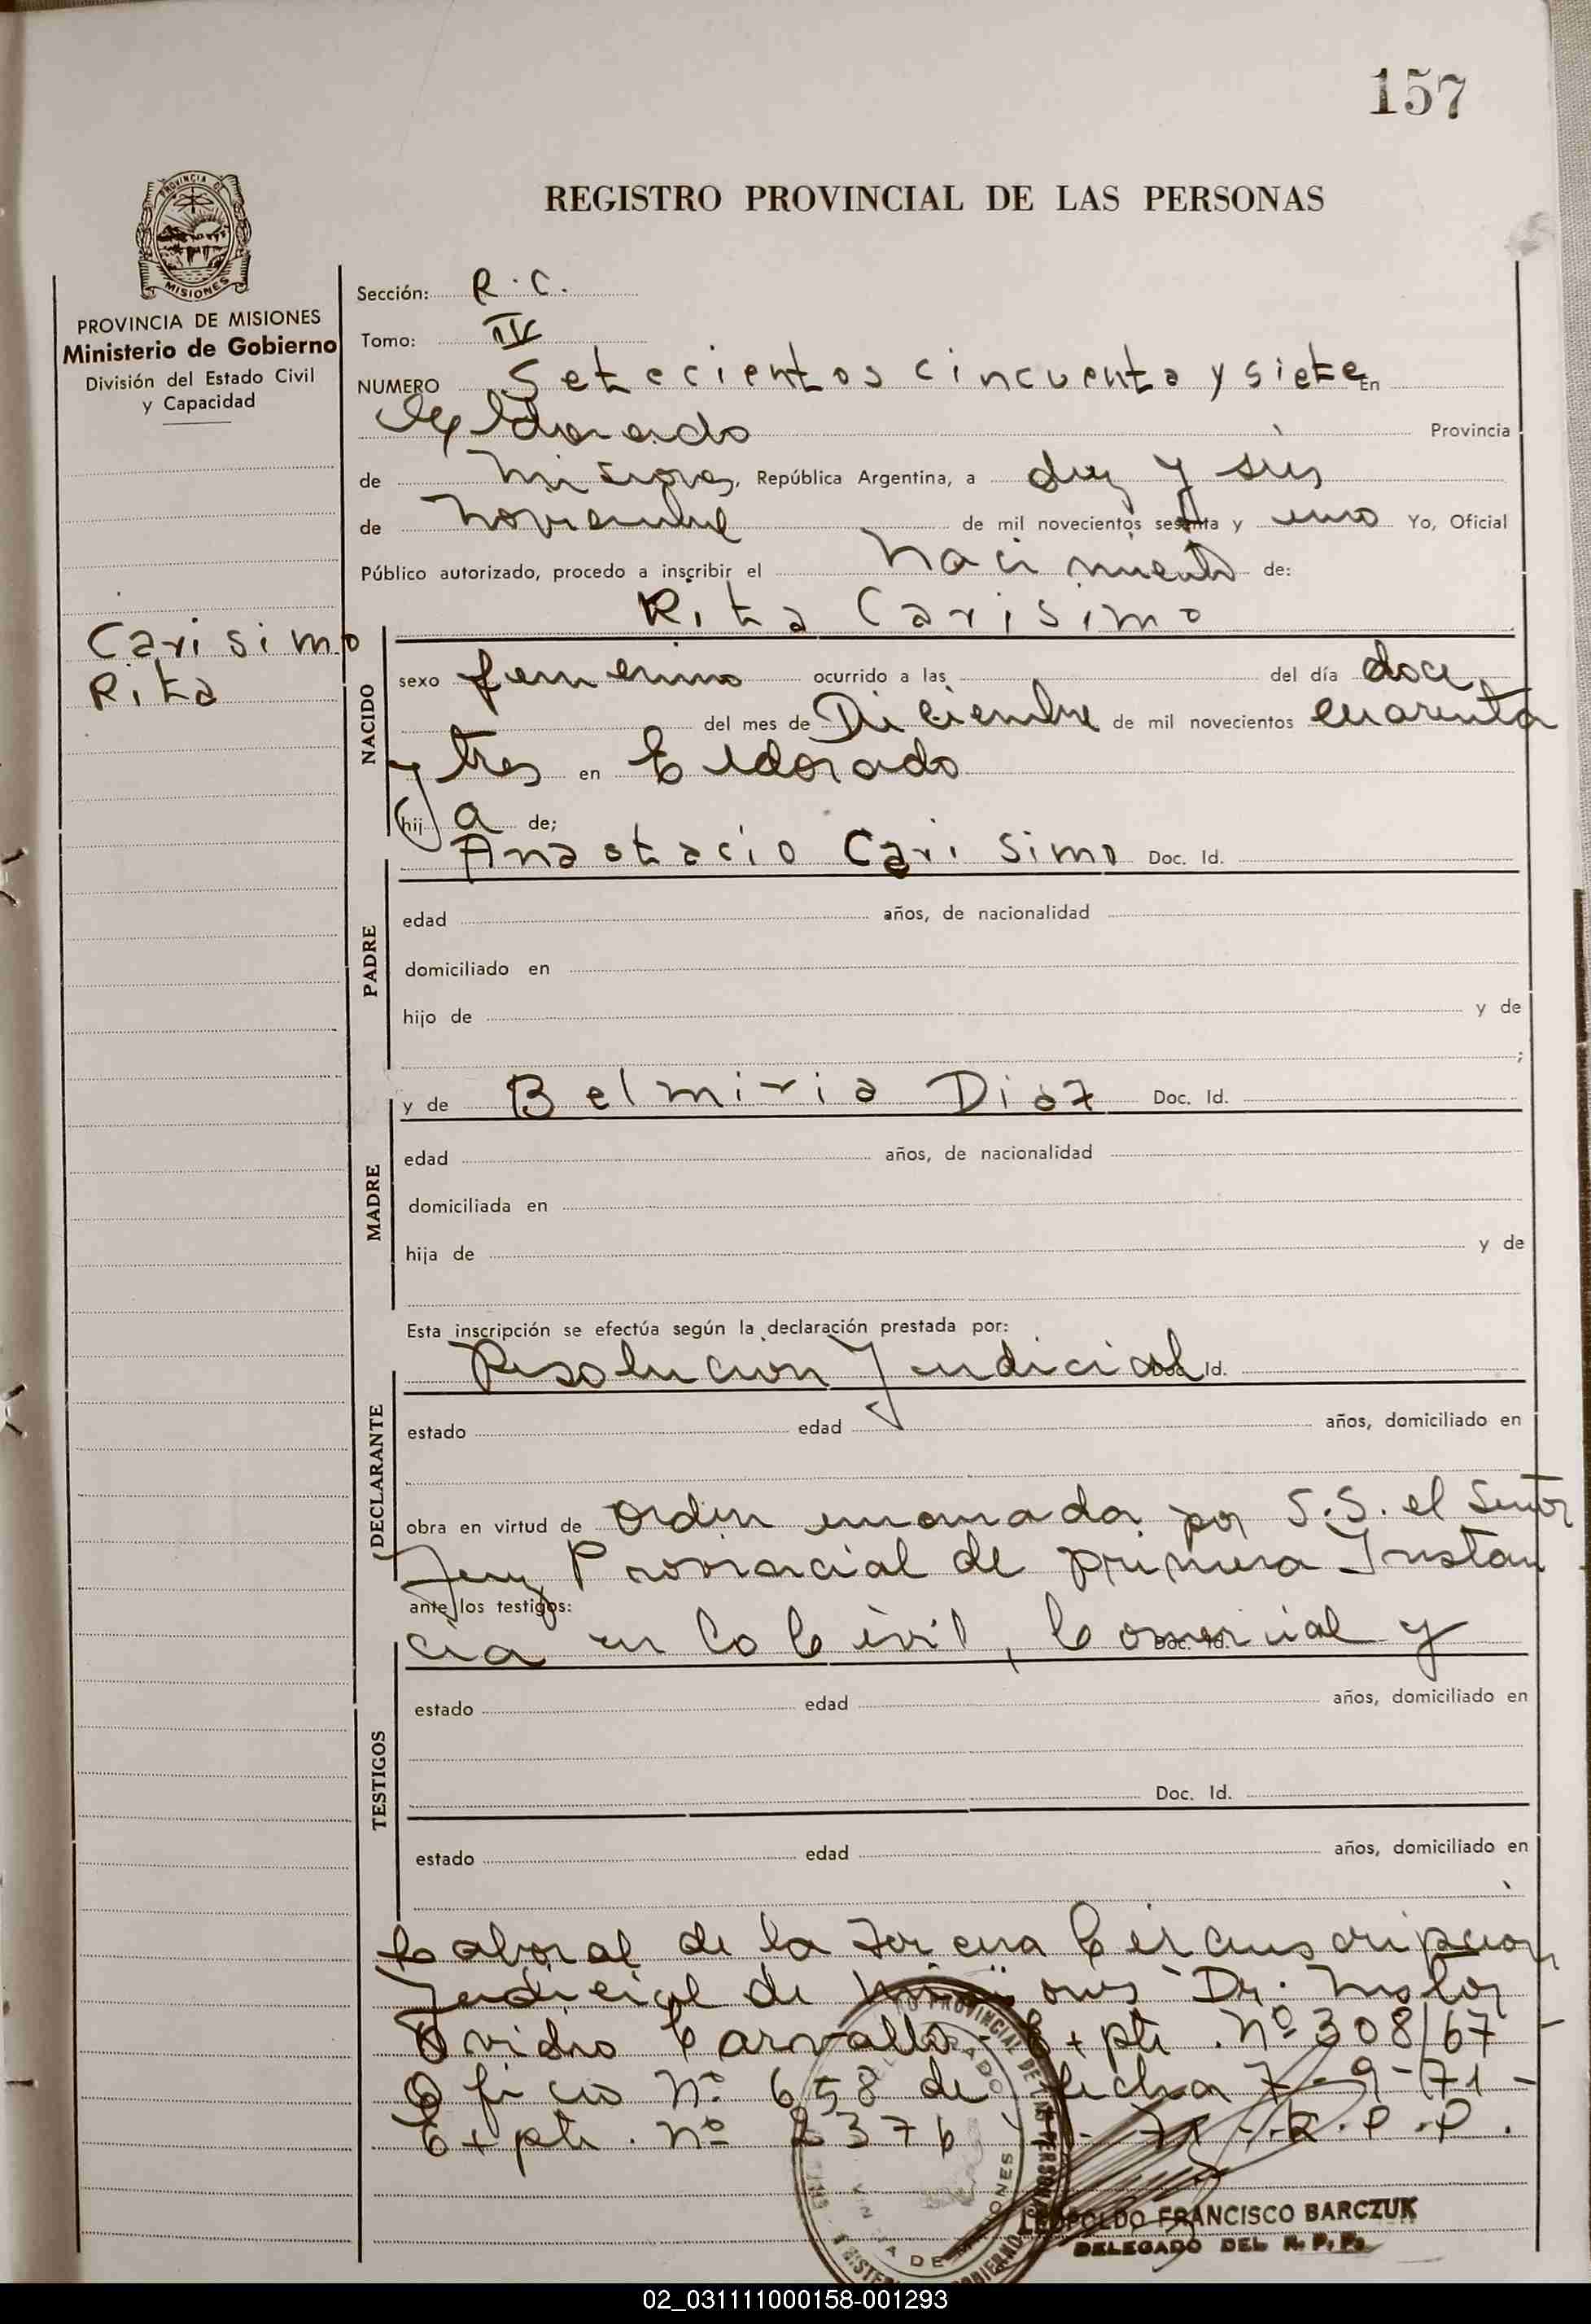 157
REGISTRO PROVINCIAL DE LAS PERSONAS
PROVINCIA DE MISIONES
MISIONES
PROVINCIA DE MISIONES
Ministerio de Gobierno
División del Estado Civil
y Capacidad
Carisimo
Rita
Sección: R. C.
Tomo: IV
NUMERO Setecientos cincuenta y siete En
Eldorado Provincia
de Misiones, República Argentina, a diez y seis
de Noviembre de mil novecientos sesenta y uno Yo, Oficial
Público autorizado, procedo a inscribir el Nacimiento de:
Rita Carisimo
NACIDO
sexo femenino ocurrido a las del día doce
del mes de Diciembre de mil novecientos cuarenta
y tres en Eldorado
hij a de;
PADRE
Anastacio Carisimo Doc. Id.
edad años, de nacionalidad
domiciliado en
hijo de y de
;
MADRE
y de Belmiria Diaz Doc. Id.
edad años, de nacionalidad
domiciliada en
hija de y de
Esta inscripción se efectúa según la declaración prestada por:
DECLARANTE
Resolucion Judicial Doc. Id.
estado edad años, domiciliado en
obra en virtud de Orden emanada por S.S. el Señor
Juez Provincial de primera Instan
ante los testigos:
cia en lo Civil, Comercial y Doc. Id.
TESTIGOS
estado edad años, domiciliado en
Doc. Id.
estado edad años, domiciliado en
Laboral de la Tercera Circunscripcion
Judicial de Misiones Dr.
Ovidio Carvallo - Expte. Nº 308/67 -
Oficio Nº 658 de fecha 7-9-71 -
Expte. Nº 2376 - 71 - R.P.P.
LEOPOLDO FRANCISCO BARCZUK
DELEGADO DEL R. P. P.
02_031111000158-001293